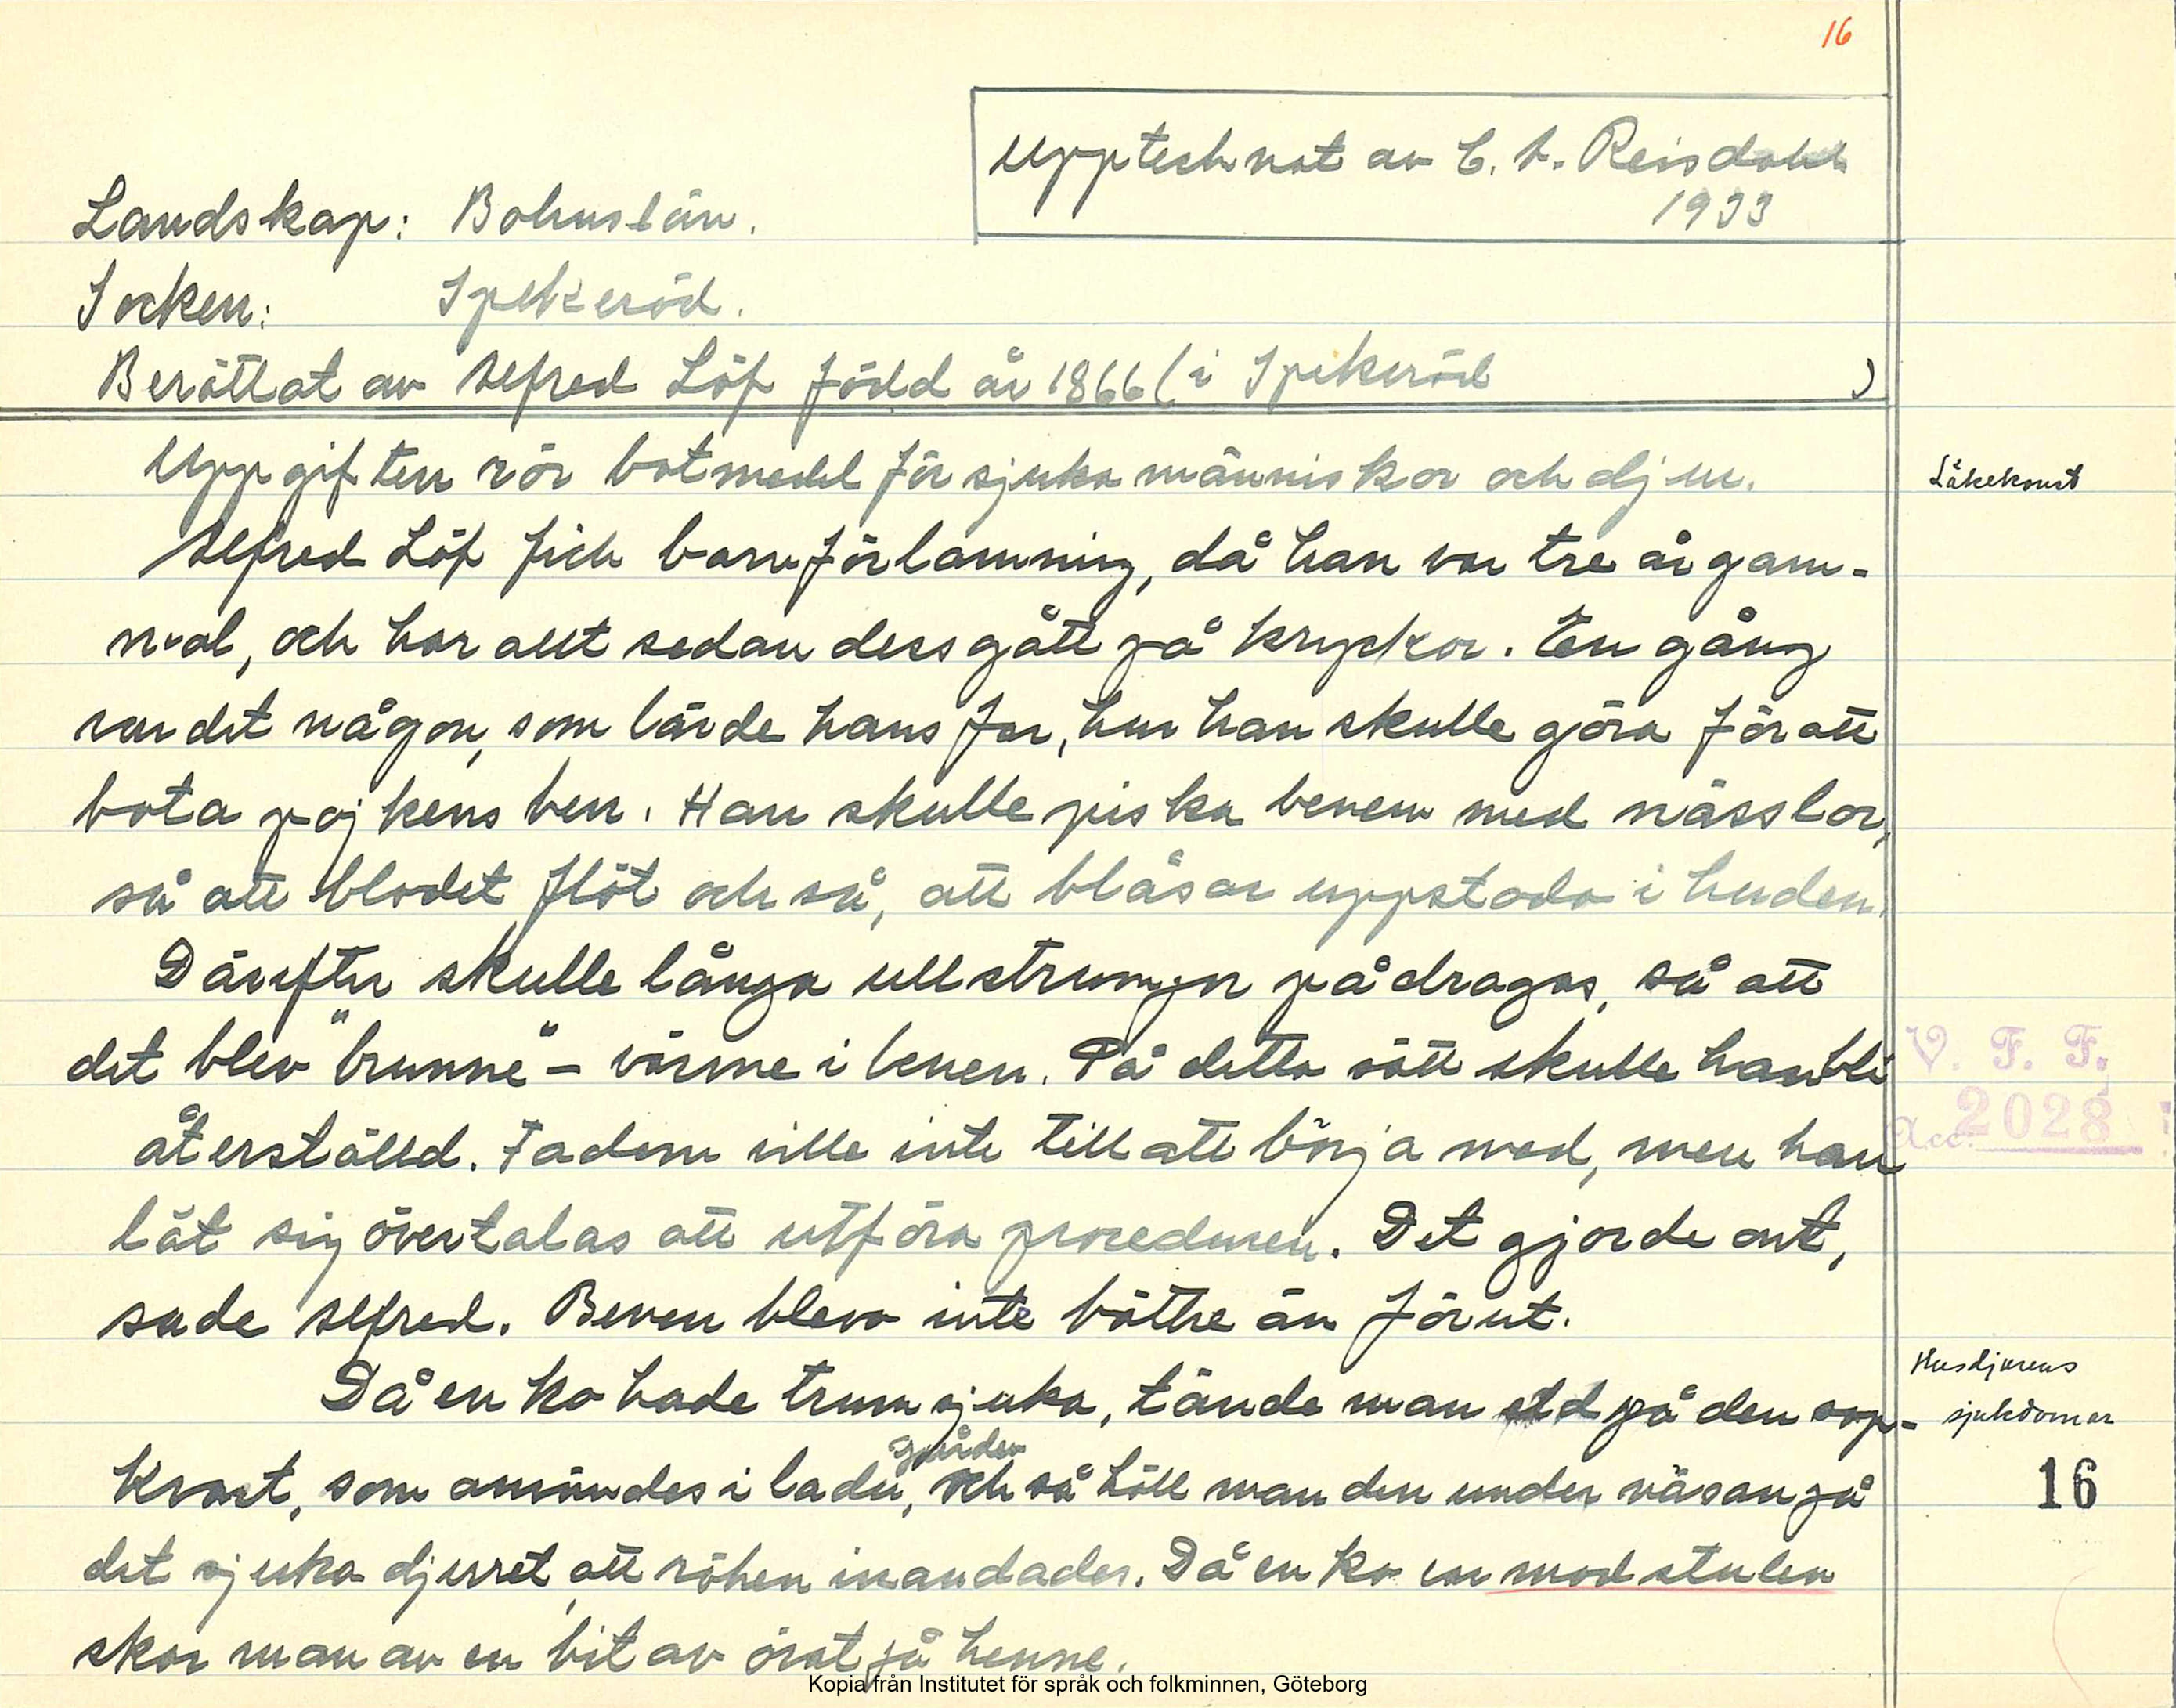 16
Upptecknat av C. A. Reisdahl
1933
Landskap: Bohuslän.
Socken: Spekeröd.
Berättat av Alfred Löf född år 1866 (i Spekeröd )
Uppgiften rör botmedel för sjuka människor och djur.
Läkekonst
Alfred Löf fick barnförlamning, då han var tre år gam-
mal, och har allt sedan dess gått på kryckor. En gång
var det någon, som lärde hans far, hur han skulle göra för att
bota pojkens ben. Han skulle piska benen med nässlor,
så att blodet flöt och så, att blåsor uppstodo i huden.
Därefter skulle långa ullstrumpor pådragas, så att
det blev "brunne" - värme i benen. På detta sätt skulle han bli
återställd. Fadern ville inte till att börja med, men han
lät sig övertalas att utföra proceduren. Det gjorde ont,
sade Alfred. Benen blevo inte bättre än förut.
V. F. F.
Acc. 2028
Då en ko hade trumsjuka, tände man eld på den sop-
Husdjurens
sjukdomar
kvast, som användes i ladugården, och så höll man den under näsan på
16
det sjuka djuret, att röken inandades. Då en ko var modstulen
skar man av en bit av örat på henne.
Kopia från Institutet för språk och folkminnen, Göteborg